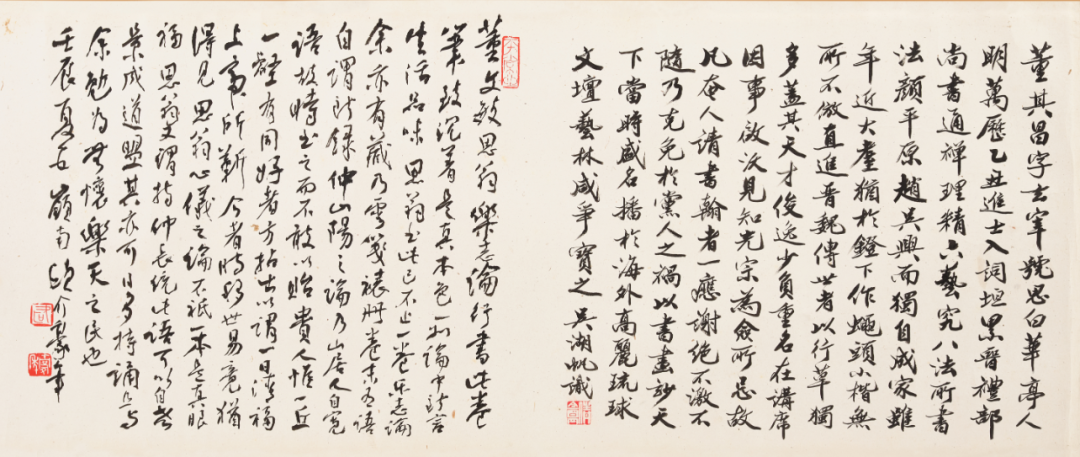 董其昌字玄宰號思白華亭人
明萬曆己丑進士入詞垣累晉禮部
尚書通禪理精六藝究八法所書
法顏平原趙吳興而獨自成家雖
年近大耋猶於鐙下作蠅頭小楷無
所不倣直追晉魏傳世者以行草獨
多蓋其天才俊逸少負重名在講席
因事啟沃見知光宗為僉所忌故
凡奄人請書翰者一應謝絕不激不
隨乃克免於黨人之禍以書畫妙天
下當時盛名播於海外高麗琉球
文壇藝林咸爭寶之 吳湖帆識
董文敏思翁樂志論行書此卷
筆致沉著是真本色一如論中所言
生活品味思翁書此已不止一卷樂志論
余亦有藏乃雪箋裱冊卷末有語
自謂所錄仲山陽之論乃山居人自寬
語故時書之而不敢以貽貴人惟一丘
一壑有同好者方拈出以謂一日清福
上帝所靳今者時移世易竟猶
得見思翁心儀之論不祇一本是真眼
福思翁又謂持仲長統此語可以自老
果成道盟其亦可日夕持誦乎
余勉為無懷葛天之民也
壬辰夏五嶺南